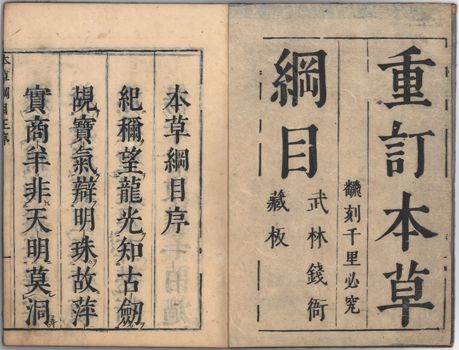 重訂本草
綱目
翻刻千里必究
武林錢衙
藏板
本草綱目序
紀稱望龍光知古劒
覘寶氣辯明珠故萍
實商羊非天明莫洞